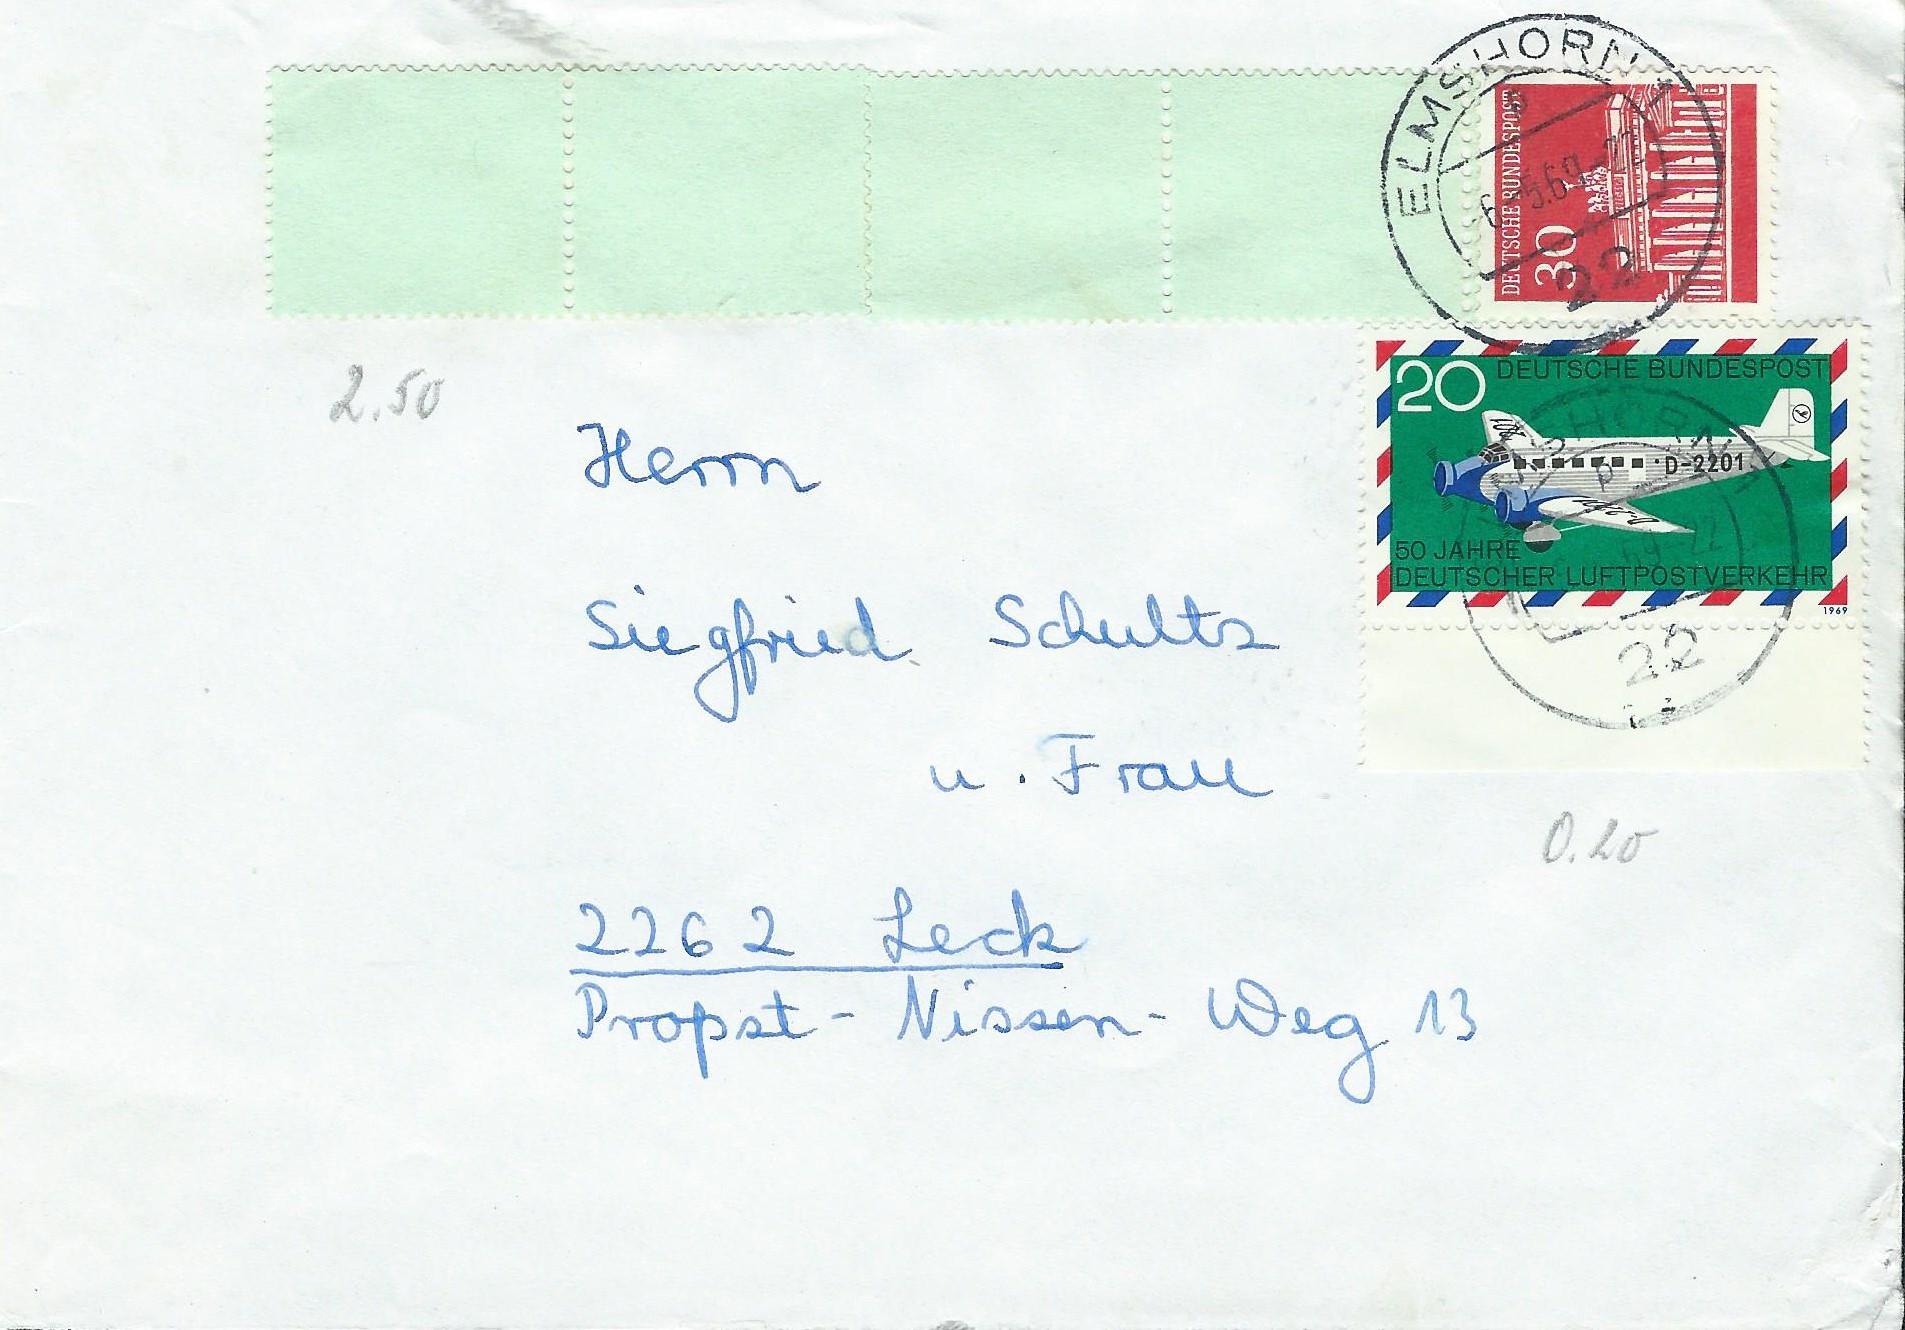 ELMSHORN 1
-6.-5.69-22
22
DEUTSCHE BUNDESPOST
30
20 DEUTSCHE BUNDESPOST
D-2201
50 JAHRE
DEUTSCHER LUFTPOSTVERKEHR
1969
22
2.50
Herrn
Siegfried Schultz
u. Frau
0.20
2262 Leck
Propst-Nissen-Weg 13